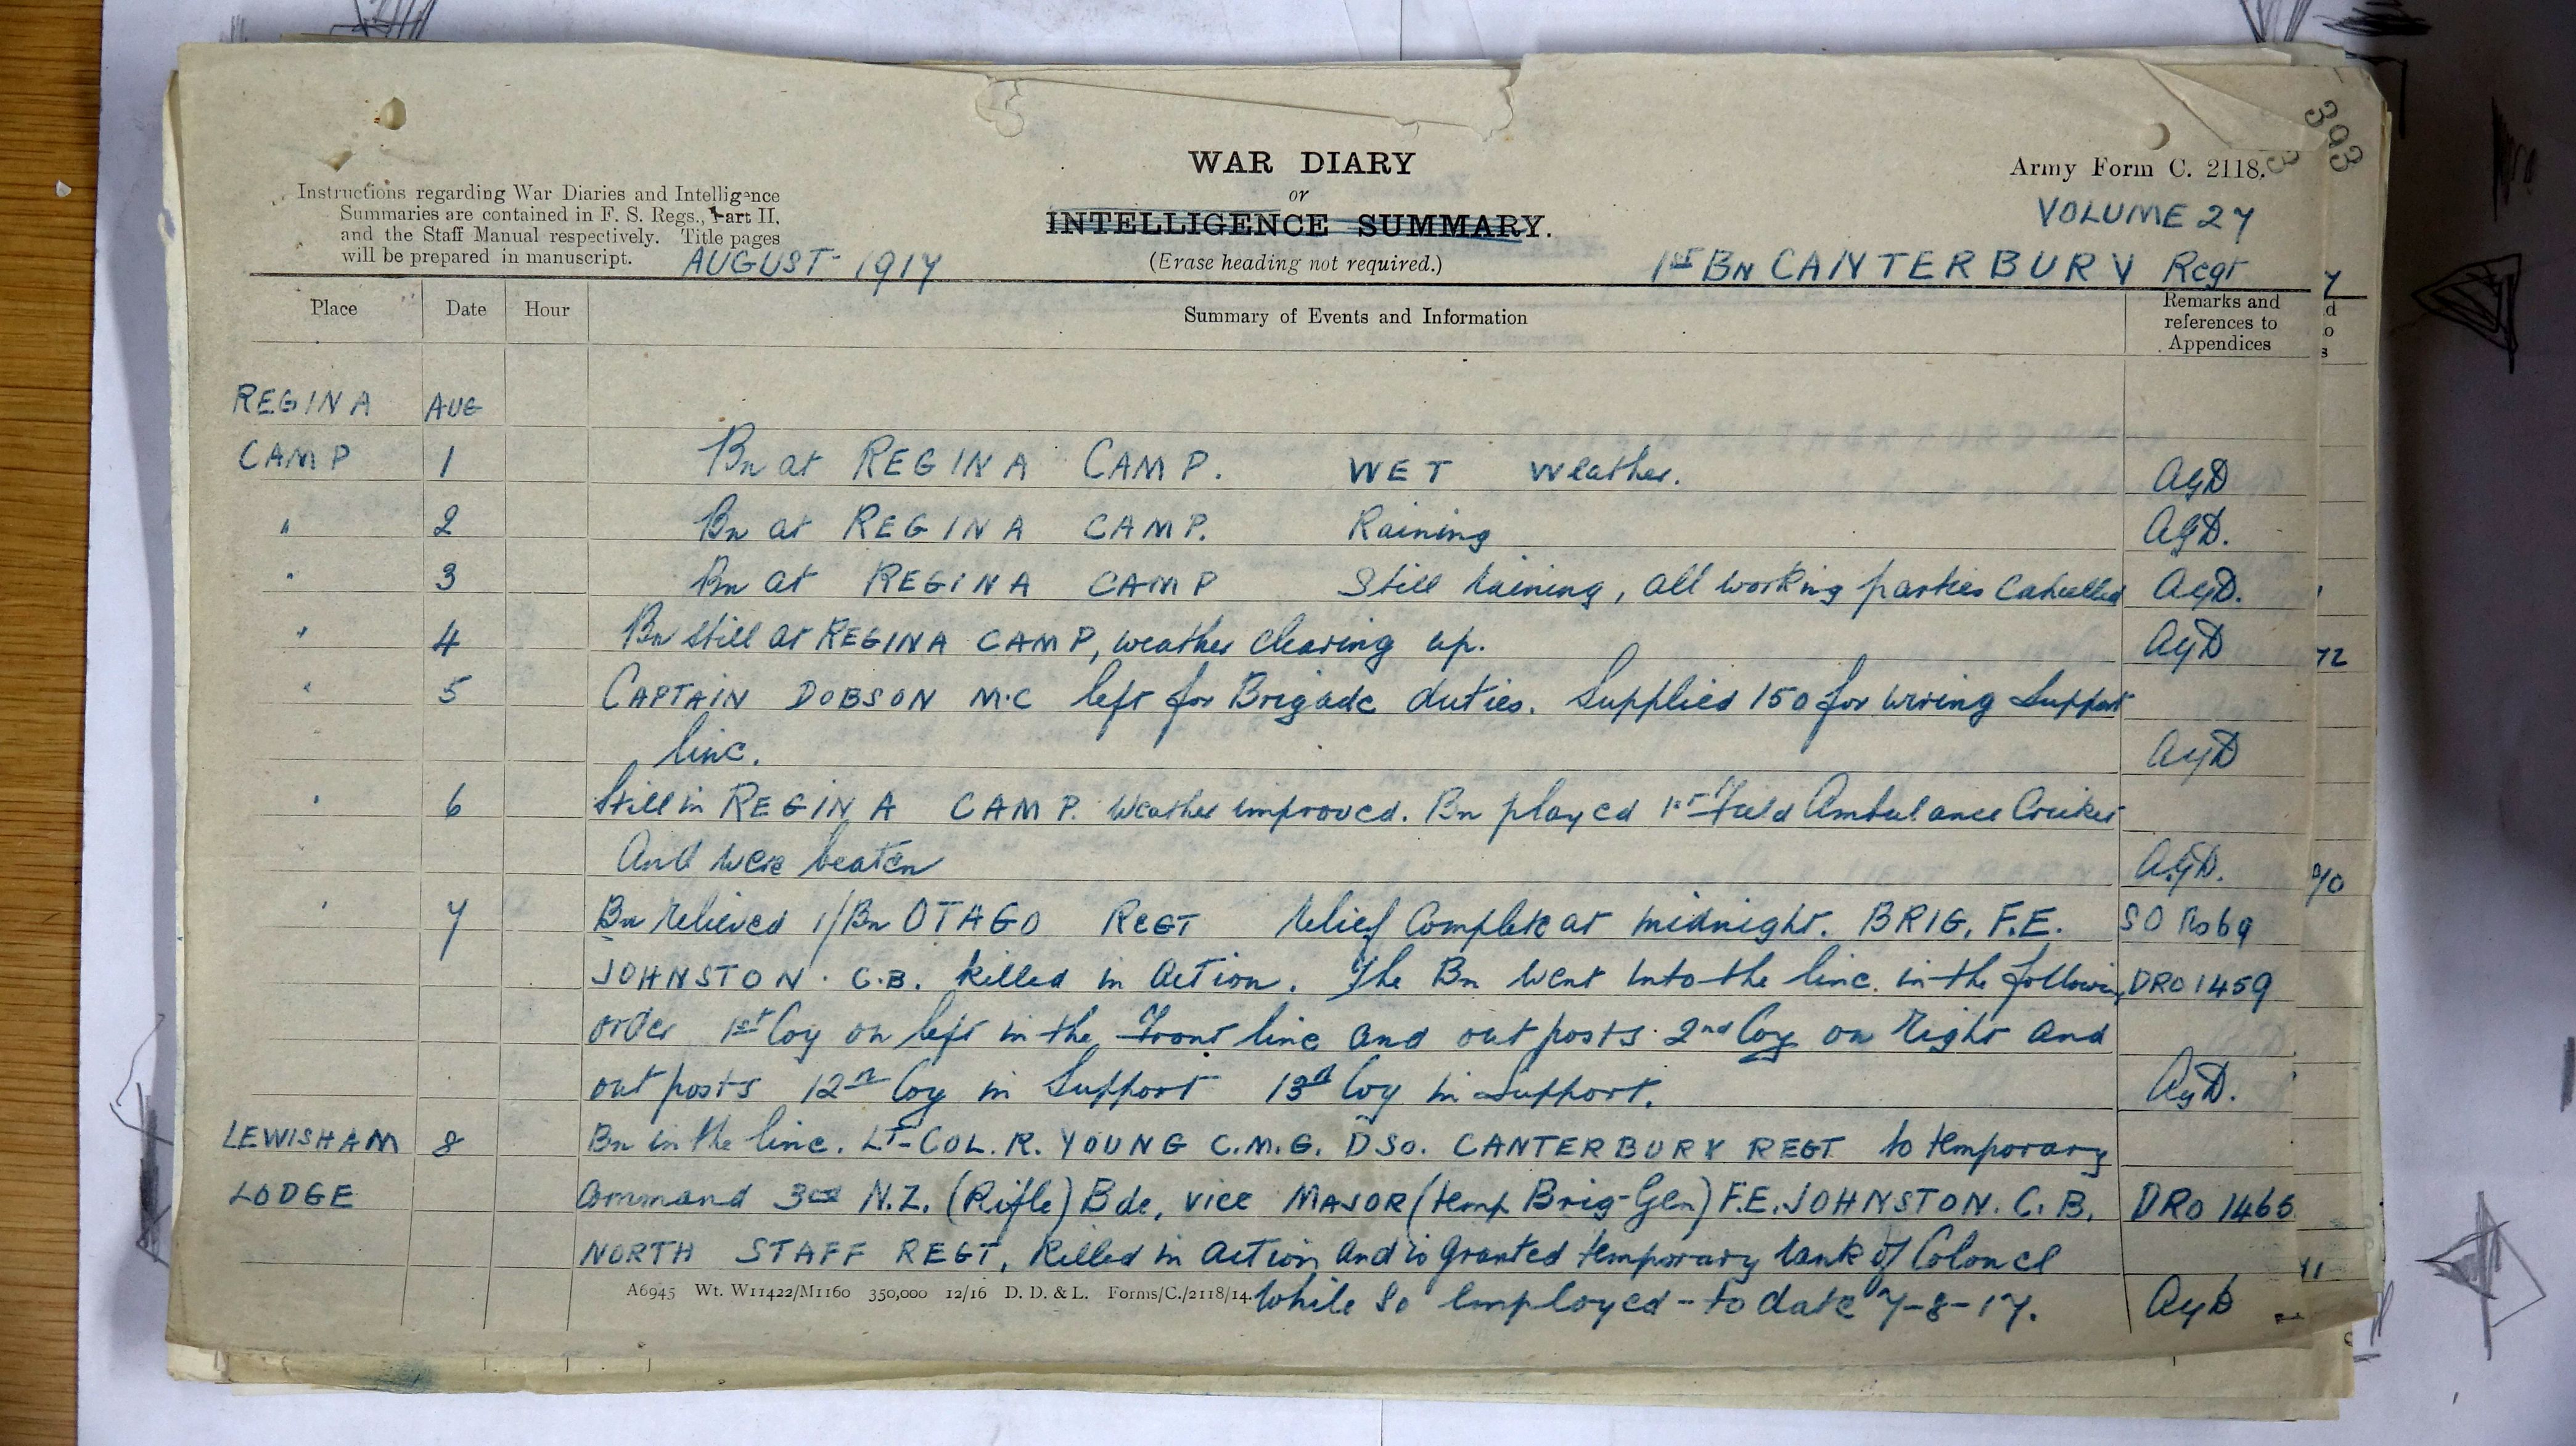 393
WAR DIARY
or
INTELLIGENCE SUMMARY.
(Erase heading not required.)
Instructions regarding War Diaries and Intelligence
Summaries are contained in F. S. Regs., Part II,
and the Staff Manual respectively. Title pages
will be prepared in manuscript.
AUGUST 1917
Army Form C. 2118.
VOLUME 27
1ST BN CANTERBURY Regt
Place Date Hour Summary of Events and Information Remarks and
references to
Appendices
REGINA AUG
CAMP 1 Bn at REGINA CAMP. WET weather. AGD
" 2 Bn at REGINA CAMP. Raining AGD.
" 3 Bn at REGINA CAMP Still raining, all working parties Cancelled AGD.
" 4 Bn still at REGINA CAMP, weather clearing up. AGD
" 5 CAPTAIN DOBSON M.C left for Brigade duties. Supplied 150 for wiring Support
line. AGD
" 6 Still in REGINA CAMP. Weather improved. Bn played 1st Field Ambulance Cricket
And were beaten AGD.
" 7 Bn relieved 1/Bn OTAGO REGT relief Complete at midnight. BRIG. F.E. SO No 69
JOHNSTON. C.B. killed in Action. The Bn went into the line in the following DRO 1459
order 1st Coy on left in the Front line and out posts 2nd Coy on Right and
out posts 12th Coy in Support 13th Coy in Support. AGD.
LEWISHAM 8 Bn in the line. LT-COL. R. YOUNG C.M.G. DSO. CANTERBURY REGT to temporary
LODGE Command 3rd N.Z. (Rifle) Bde, vice MAJOR (temp Brig-Gen) F.E. JOHNSTON. C.B. DRO 1465
NORTH STAFF REGT, Killed in Action and is granted temporary rank of Colonel
while so employed - to date 7-8-17. AGD
A6945 Wt. W11422/M1160 350,000 12/16 D. D. & L. Forms/C./2118/14.